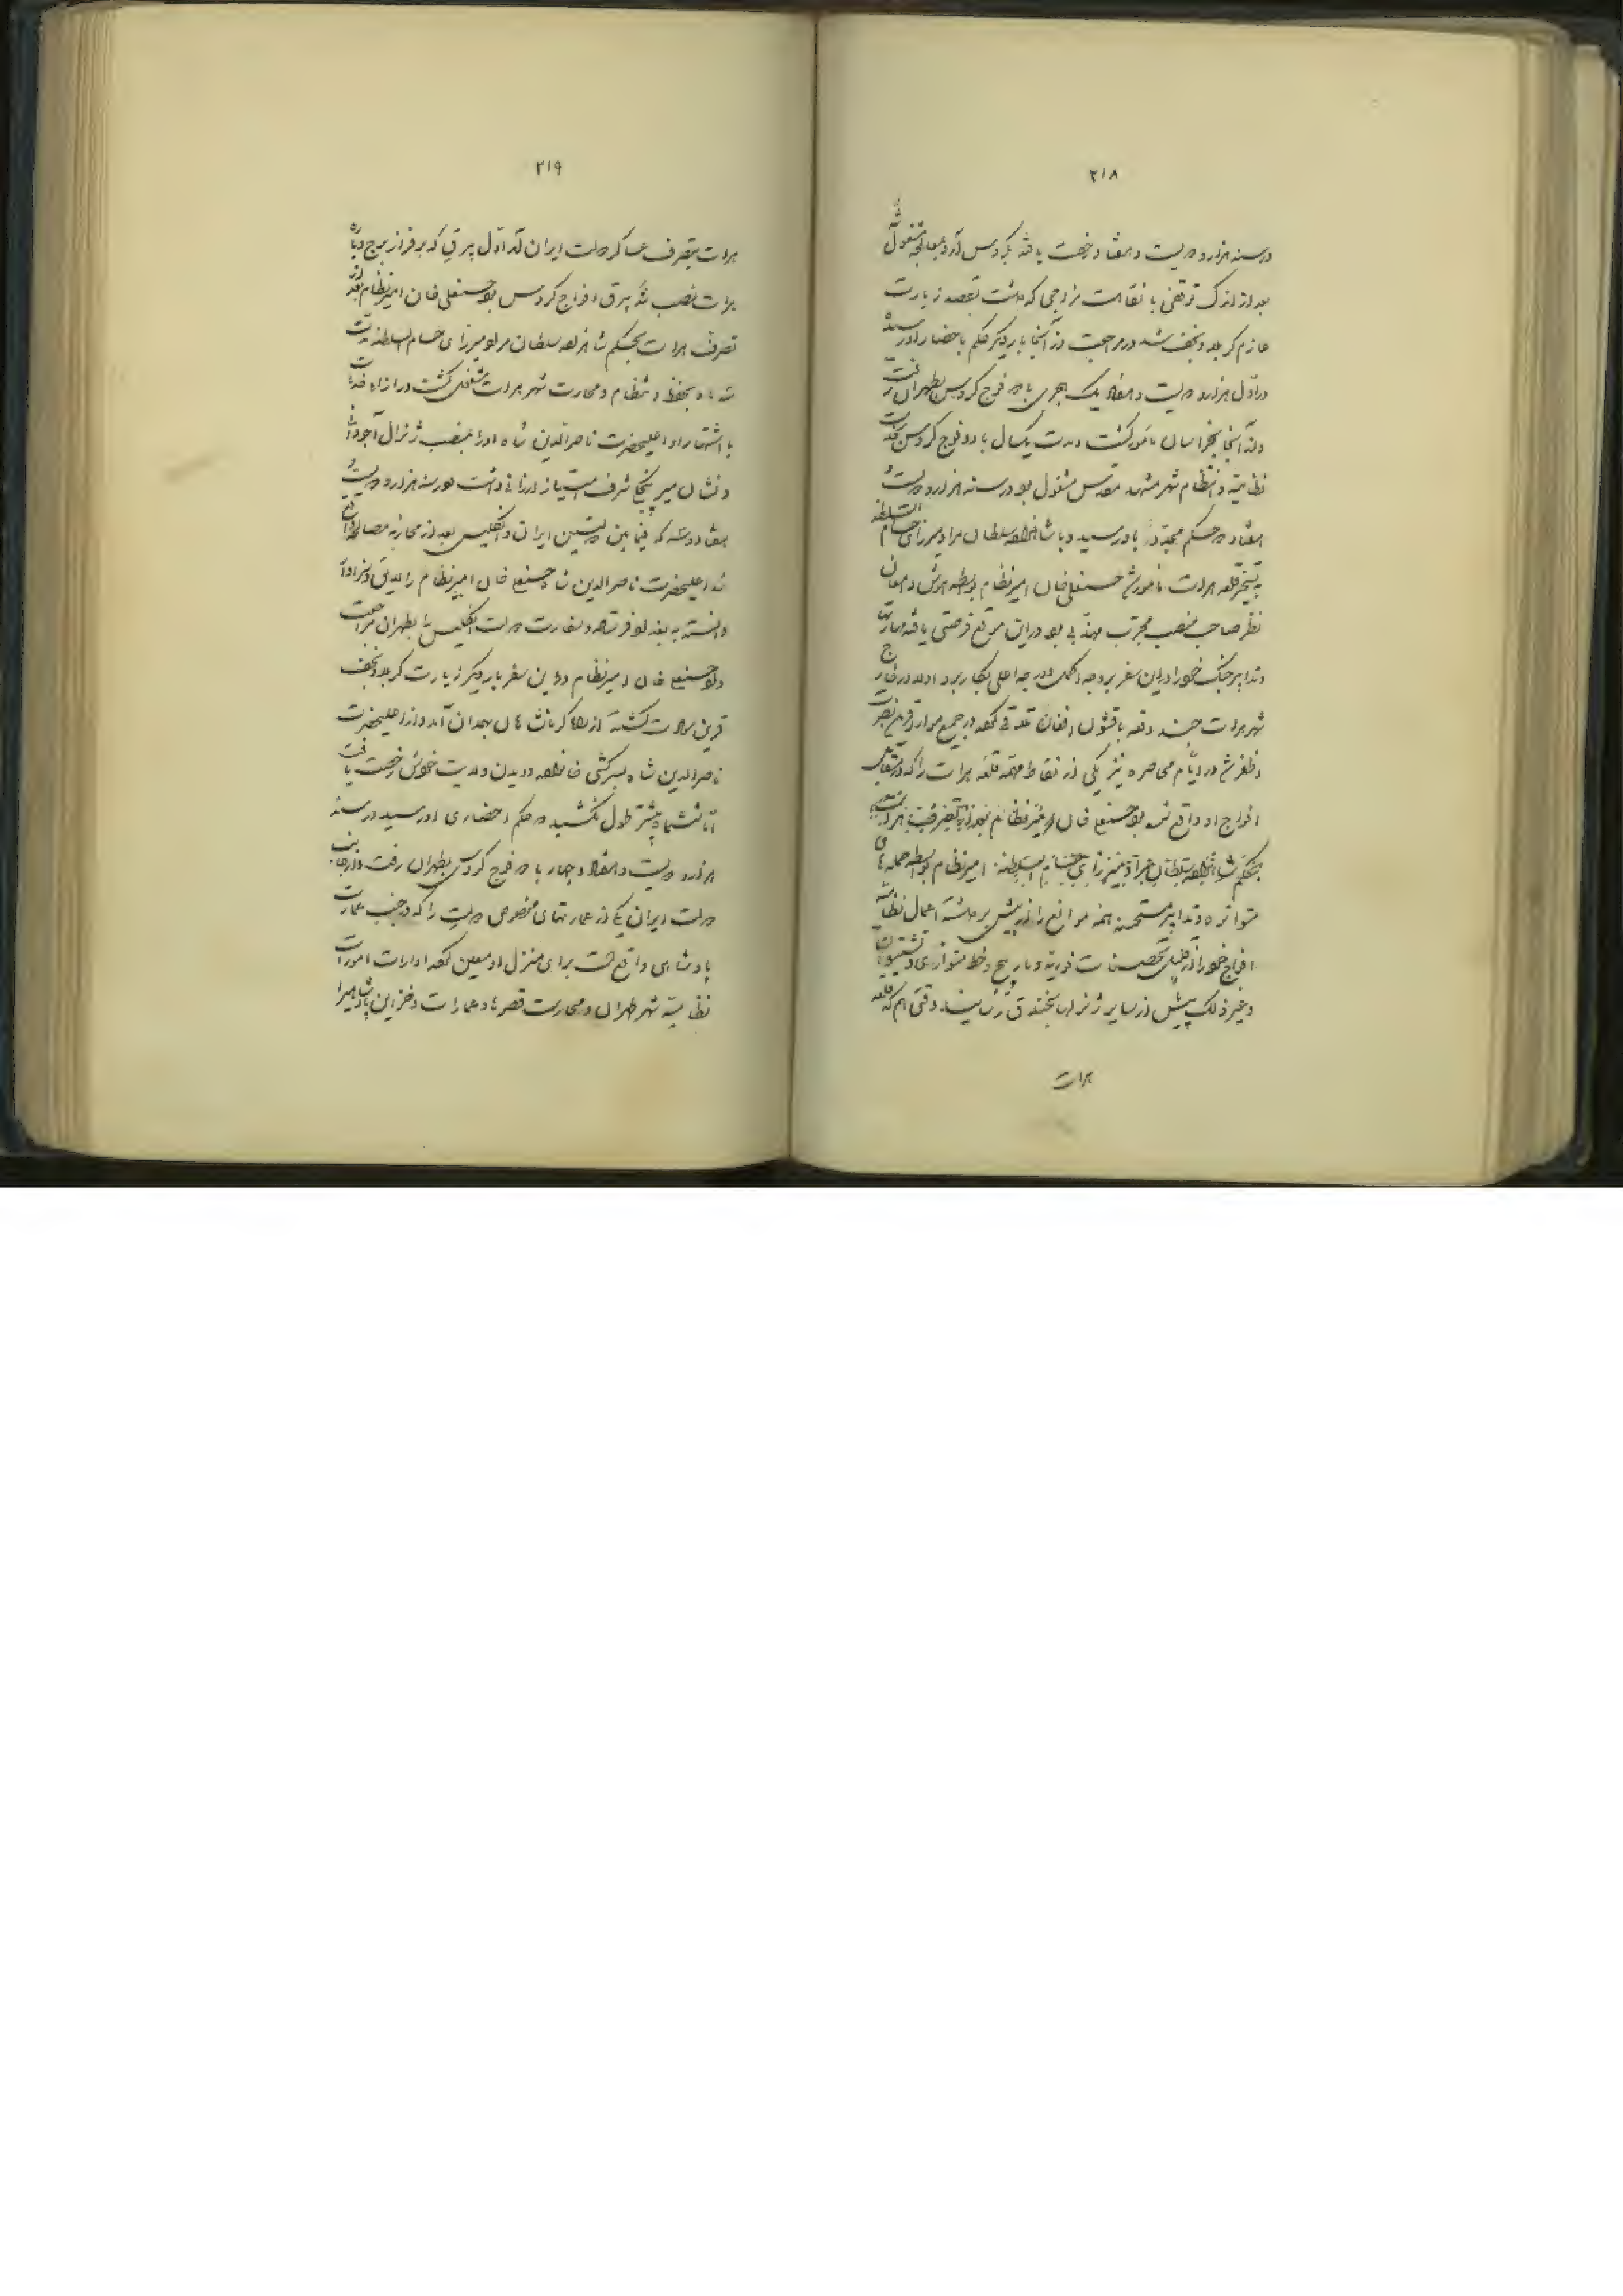 ۲۱۸
در سنه هزار و دویست و هفتاد رخصت یافته بکروس آمد و بمعالجه مشغول شد
بعد از اندک توقفی با نقاهت مزاجی که داشت بقصد زیارت
عازم کربلا و نجف شد در مراجعت از آنجا بار دیگر حکم باحضار او رسید
در اول هزار و دویست و هفتاد یک هجری با دو فوج کروس بطهران رفت
و از آنجا بخراسان مأمور گشت و مدت یکسال با دو فوج کروس بخدمت
نظامیه و انتظام شهر مشهد مقدس مشغول بود در سنه هزار و دویست و
هفتاد و دو حکم مجدداً باو رسید و با شاهزاده سلطان مراد میرزای حسام السلطنه
به تسخیر قلعه هرات مأمور شد حسنعلی خان امیرنظام بواسطه هوش و امعان
نظر صاحب منصب مجرب مهذبی بود در این موقع فرصتی یافته مهارت
و تدابیر جنگ خود را در این سفر بروجه اکمل و درجه اعلی بکار برد اولا در خارج
شهر هرات چند دفعه با قشون افغان تلاقی کرده در جمیع موارد قرین نصرت
و ظفر شد در ایام محاصره نیز یکی از نقاط مهمه قلعه هرات را که در مقابل
افواج او واقع شده بود حسنعلی خان امیرنظام
بحکم شاهزاده سلطان مراد میرزای حسام السلطنه امیرنظام بواسطه حمله های
متواتره و تدابیر مستحسنه همه موانع را از پیش برداشته اعمال نظامیه
افواج خود را از قبیل تحصینات فوریه و مارپیچ و خط متوازی و
و غیر ذلک پیش از سایر ژنرالها بخندق رسانید وقتی هم که قلعه
هرات
۲۱۹
هرات بتصرف عساکر دولت ایران آمد اول بیرق که بر فراز برج و باره
هرات نصب شد بیرق افواج کروس بود حسنعلی خان امیرنظام بعد از
تصرف هرات بحکم شاهزاده سلطان مراد میرزای حسام السلطنه مدت
شد ماه بحفظ و نظام و حراست شهر هرات مشغول گشت و در ازاء خدمات
با اشتهار او اعلیحضرت ناصرالدین شاه او را بمنصب ژنرال آجودانی
و نشان میرپنجی شرف امتیاز ارزانی داشت در سنه هزار و دویست و
هفتاد و سه که فیمابین دولتین ایران و انگلیس بعد از محاربه مصالحه واقع
شد اعلیحضرت ناصرالدین شاه حسنعلی خان امیرنظام را لایق و سزاوار
دانسته به بغداد فرستاد و سفارت دولت انگلیس را بطهران مراجعت
داد حسنعلی خان امیرنظام در این سفر بار دیگر زیارت کربلا و نجف
قرین سعادت گشته از راه کرمانشاهان بهمدان آمد و از اعلیحضرت
ناصرالدین شاه بسرکشی خانواده و دیدن ولایت خویش رخصت یافت
اما شش ماه بیشتر طول نکشید که حکم احضاری او رسید در سنه
هزار و دویست و هفتاد و چهار با دو فوج کروس بطهران رفت و از جانب
دولت ایران یکی از عمارتهای مخصوص دولت را که در جنب عمارت
پادشاهی واقع است برای منزل او معین کرده ادارات امورات
نظامیه شهر طهران و حراست قصرها و عمارات و خزاین پادشاهی را